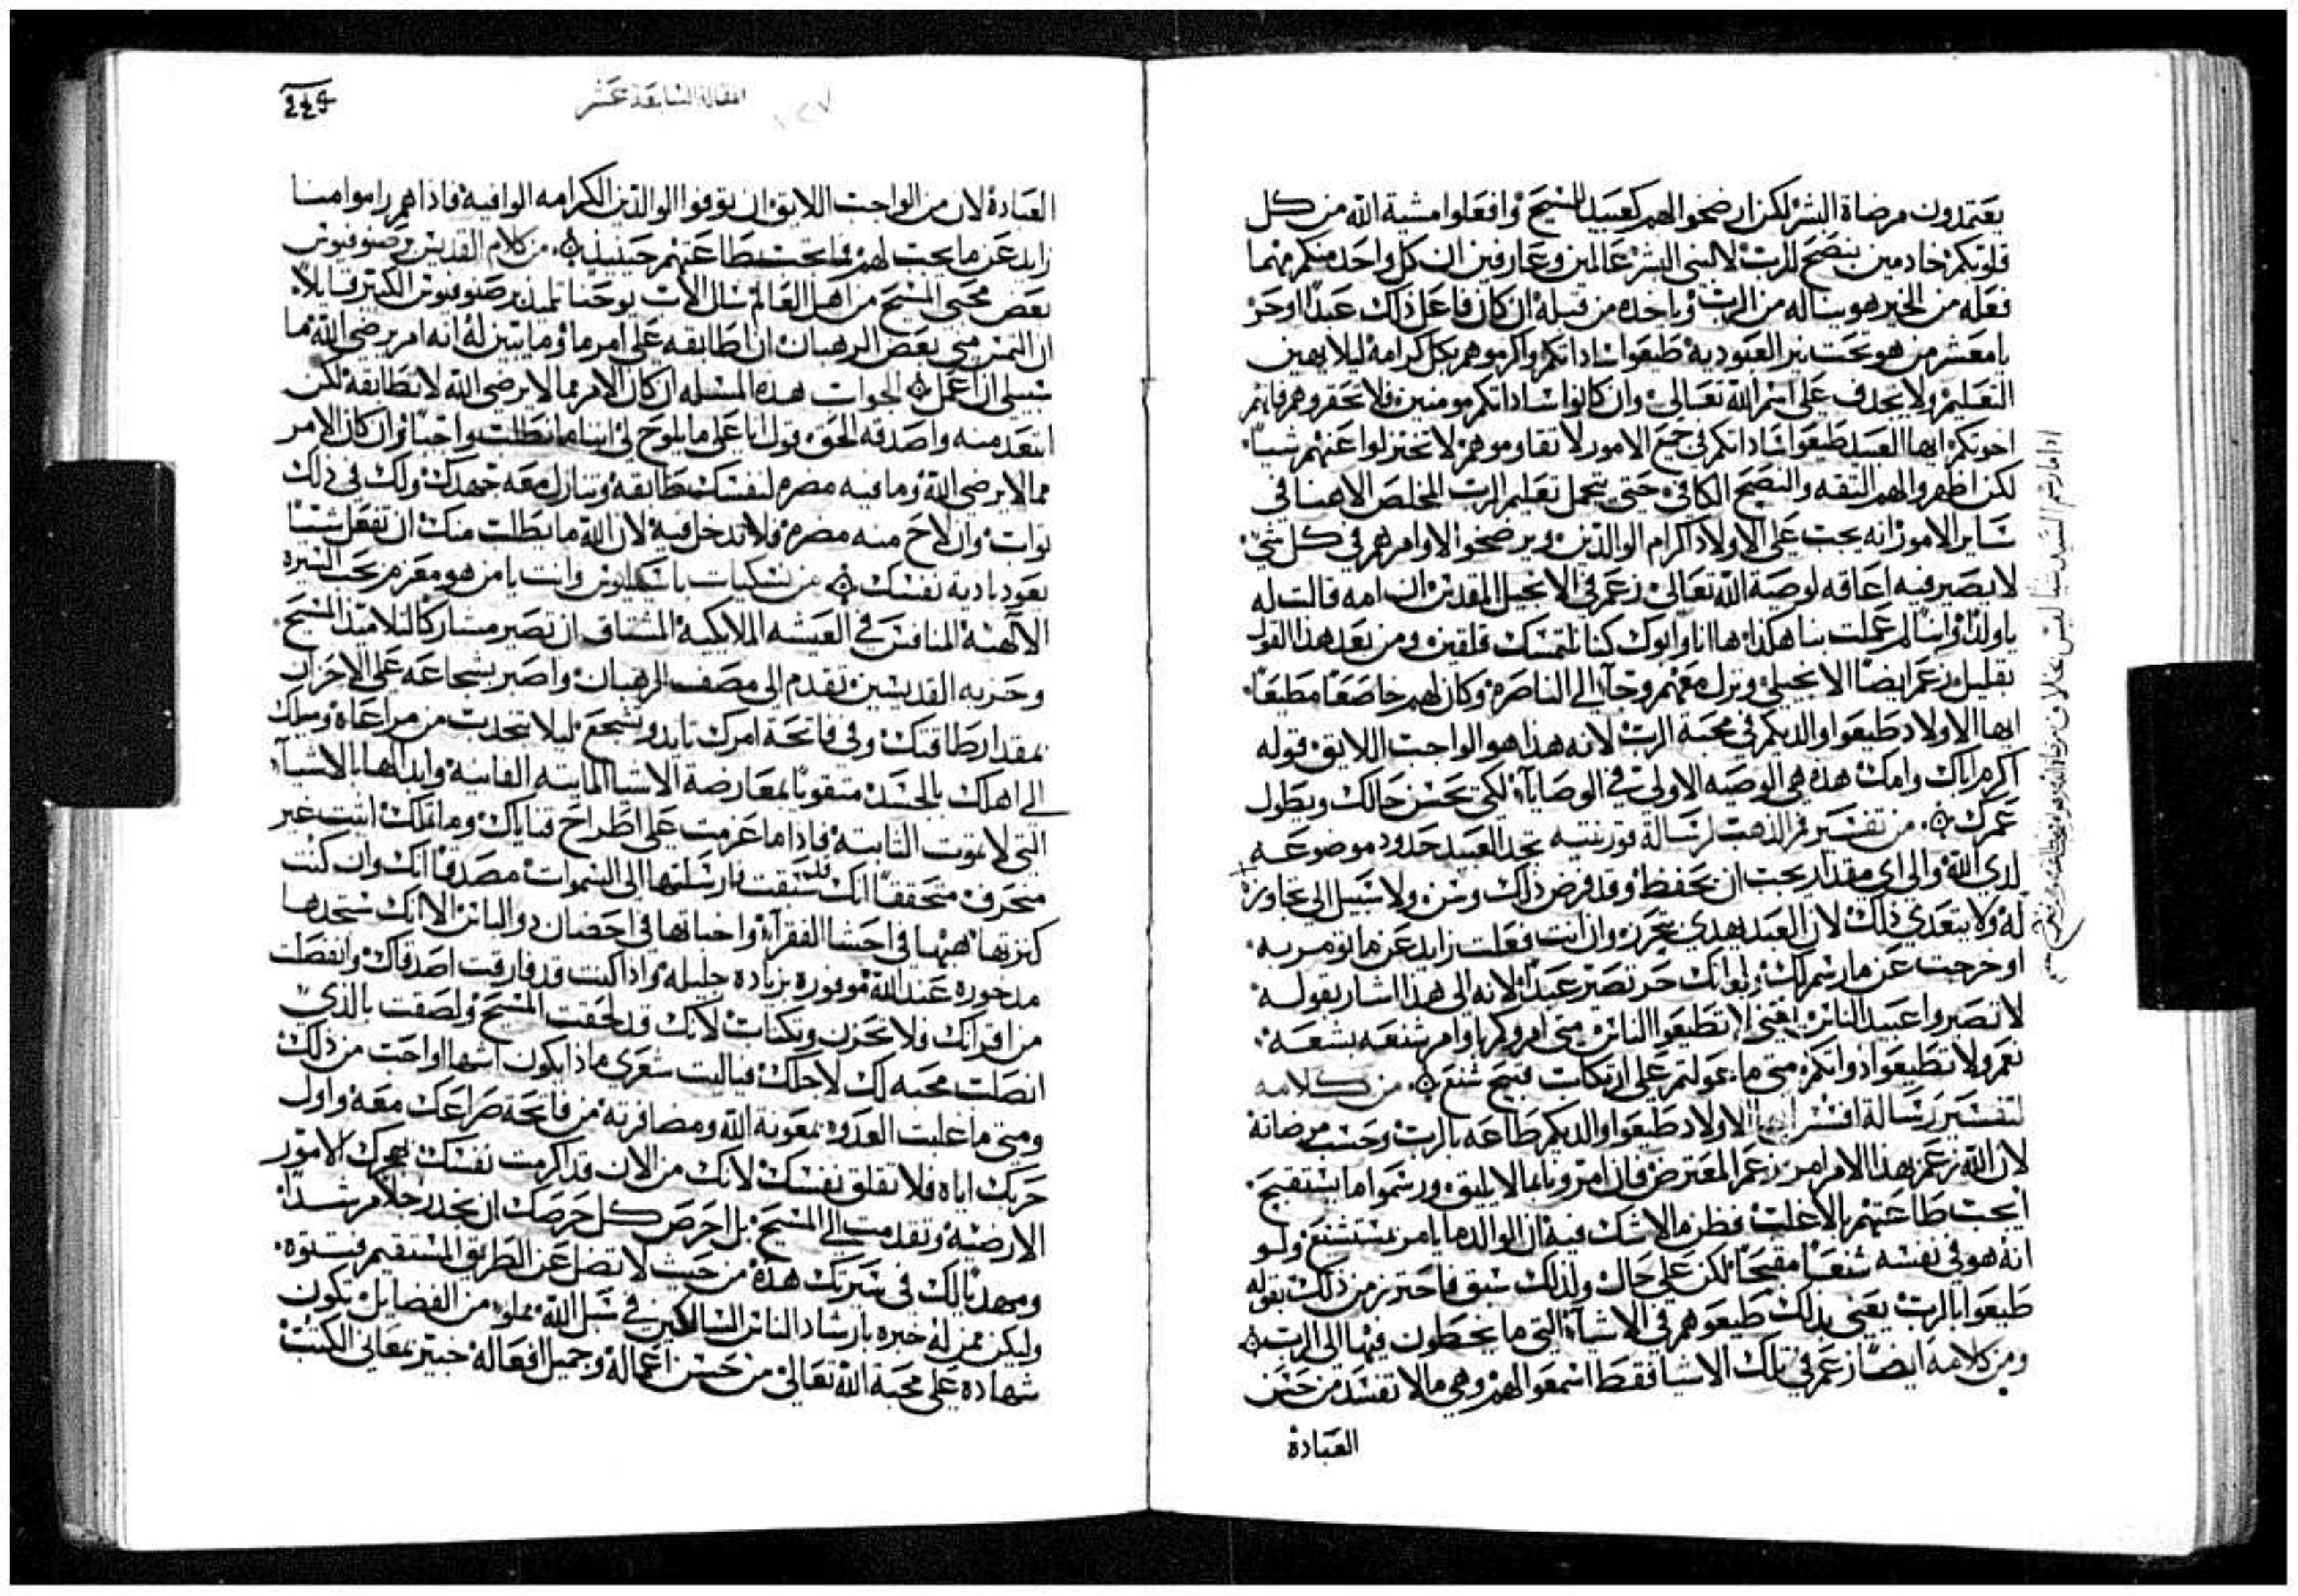 يعتمدون مرضاة البشر لكن ارضخوا لهم كعبيد للمسيح وافعلوا مشية الله من كل
قلوبكم خادمين بنصح للرب لا لبني البشر عالمين وعارفين ان كل واحد منكم مهما
فعله من الخير هو يناله من الرب وياخده من قبله ان كان فاعل ذلك عبدا او حر
يا معشر من هو تحت نير العبوديه طيعوا ساداتكم واكرموهم بكل كرامه ليلا يهين
التعليم ولا يجدف على اسم الله تعالى وان كانوا ساداتكم مومنين فلا تحقروهم فانهم
اخوتكم ايها العبيد طيعوا ساداتكم في جميع الامور لا تقاوموهم لا تختزلوا عنهم شيا
لكن اظهروا لهم الثقه والنصح الكافي حتى يتجمل تعليم الرب المخلص الاهنا في
ساير الامور انه يجب على الاولاد اكرام الوالدين ويرضخوا لاوامرهم في كل شي
لا يصير فيه اعاقه لوصية الله تعالى زعم في الانجيل المقدس ان امه قالت له
يا ولدي لم عملت بنا هكذا ها انا وابوك كنا نلتمسك قلقين ومن بعد هذا القول
بقليل زعم ايضا الانجيلي ونزل معهم وجآ الى الناصره وكان لهم خاضعا مطيعا
ايها الاولاد طيعوا والديكم في محبة الرب لانه هذا هو الواجب اللايق قوله
اكرم اباك وامك هذه هي الوصيه الاولى في الوصايا لكي تحسن حالك ويطول
عمرك من تفسير فم الذهب لرسالة قورنتيه تجد العبيد حدود موضوعه
لدي الله والى اي مقدار يجب ان يحفظ وقد فرض ذلك وسن ولا سبيل الى تجاوز
له ولا يتعدي ذلك لان العبد بهدي يتحرر وان انت فعلت زايد عن ما تومر به
او خرجت عن ما رسم لك ولو انك حر تصير عبدا لانه الى هذا اشار بقوله
لا تصيروا عبيد الناس اعني لا تطيعوا الناس متى امروكم باوامر شنعه بشعه
نعم ولا تطيعوا ذواتكم متى ما عولتم على ارتكاب قبيح شنع من كلامه
لتفسير رسالة افسس ايها الاولاد طيعوا والديكم طاعه بالرب وحسب مرضاته
لان الله زعم بهذا الامر امر زعم المعترض فان امروا بما لا يليق ورسموا ما يستقبح
ايجب طاعتهم بالاغلب فظن ما لا شك فيه ان الوالد ما يامر بمستشنع ولو
انه هو في نفسه شنعا مقبحا لكن على حال ولذلك سبق فاحترز من ذلك بقوله
طيعوا بالرب يعني بذلك طيعوهم في الاشيآ التي ما يخطون فيها الى الرب
ومن كلامه ايضا زعم في تلك الاشيا فقط اسمعوا لهم وهي ما لا تفسد من حسن
العبادة
المقالة السابعة عشر
العبادة لان من الواجب اللايق ان يوفوا الوالدين الكرامه الوافيه فاذا هم راموا منا
زايد عن ما يجب لهم فما تجب طاعتهم حينيذ من كلام القديس برصنوفيوس
بعض محبي المسيح من اهل العالم سال الاب يوحنا تلميذ برصنوفيوس الكبير قايلا
ان التمس مني بعض الرهبان ان اطابقه على امر ما وما يتبين له انه امر يرضي الله ما
سبيلي ان اعمل الجواب هذه المسله ان كان الامر مما لا يرضي الله لا تطابقه لكن
ابتعد منه واصدقه الحق قولا على ما يلوح لي انا ما يطلب واجبا وان كان الامر
مما لا يرضي الله وما فيه مضره لنفسك طابقه وتنازل معه جهدك ولك في ذلك
ثواب وان لاح منه مضره فلا تدخل فيه لان الله ما يطلب منك ان تفعل شيا
يعود باديه نفسك من نسكيات باسيليوس وانت يا من هو مغرم بحب السيره
الالهيه المنافس في العيشه الملايكيه المشتاق ان تصير مشاركا لتلاميذ المسيح
وحزبه القديسين تقدم الى مصف الرهبان واصبر بشجاعه على الاحزان
بمقدار طاقتك وفي فاتحة امرك تايد وتشجع ليلا تنجدب من مراعاة وميلك
الى اهلك بالجسد متقويا لمعارضة الاشيا المايته الفانيه وابدالها بالاشيا
التي لا تموت الثابته فاذا ما عزمت على اطراح قناياك وما تملك اثبت غير
منحرف متحققا انك قد سبقت فارسلتها الى السموات مصدقا انك وان كنت
كنزتها ههنا في احشا الفقرآ واخباتها في احضان ذو الباس الا انك ستجدها
مدخوره عند الله موفوره بزياده جليله واذا كنت قد فارقت اصدقاك وانفصلت
من اقرانك فلا تحزن وتكتاب لانك قد لحقت المسيح ولصقت بالذي
انصلب محبه لك لاجلك فياليت شعري ماذا يكون اشها واحب من ذلك
ومتى ما غلبت العدو بمعونة الله ومضافرته من فاتحة صراعك معه واول
حربك اياه فلا تقلق نفسك لانك من الان قد اكرمت نفسك بهجرك الامور
الارضيه وتقدمت الى المسيح بل احرص كل حرصك ان تجد رجلا مرشدا
ومهديا لك في سيرتك هذه من حيث لا تضل عن الطريق المستقيم فتتوه
وليكن ممن له خبره بارشاد الناس السالكين في سبل الله مملوا من الفضايل تكون
شهاده على محبة الله تعالى من حسن اعماله وجميل افعاله خبير بمعاني الكتب